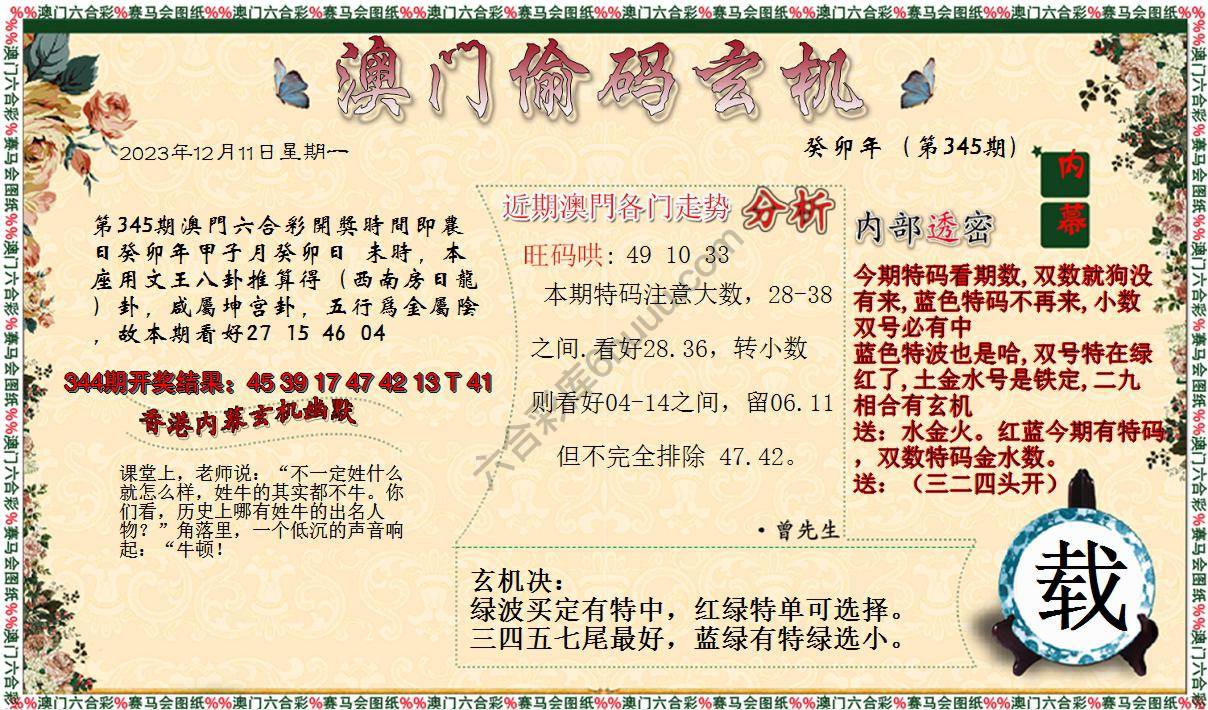 %%澳门六合彩%赛马会图纸%%澳门六合彩%赛马会图纸%%澳门六合彩%赛马会图纸%%澳门六合彩%赛马会图纸%%澳门六合彩%赛马会图纸%%澳门六合彩%赛马会图纸%%
澳门偷码玄机
2023年12月11日星期一
癸卯年（第345期）
内幕
第345期澳門六合彩開獎時間即農
日癸卯年甲子月癸卯日 未時，本
座用文王八卦推算得（西南房日龍
）卦，咸屬坤宫卦，五行爲金屬陰
，故本期看好27 15 46 04
344期开奖结果：45 39 17 47 42 13 T 41
香港内幕玄机幽默
课堂上，老师说：“不一定姓什么
就怎么样，姓牛的其实都不牛。你
们看，历史上哪有姓牛的出名人
物？”角落里，一个低沉的声音响
起：“牛顿！
近期澳門各门走势 分析
旺码哄: 49 10 33
本期特码注意大数，28-38
之间.看好28.36，转小数
则看好04-14之间，留06.11
但不完全排除 47.42。
·曾先生
内部透密
今期特码看期数,双数就狗没
有来,蓝色特码不再来,小数
双号必有中
蓝色特波也是哈,双号特在绿
红了,土金水号是铁定,二九
相合有玄机
送：水金火。红蓝今期有特码
，双数特码金水数。
送：（三二四头开）
玄机决：
绿波买定有特中，红绿特单可选择。
三四五七尾最好，蓝绿有特绿选小。
载
六合彩库6huuu.com